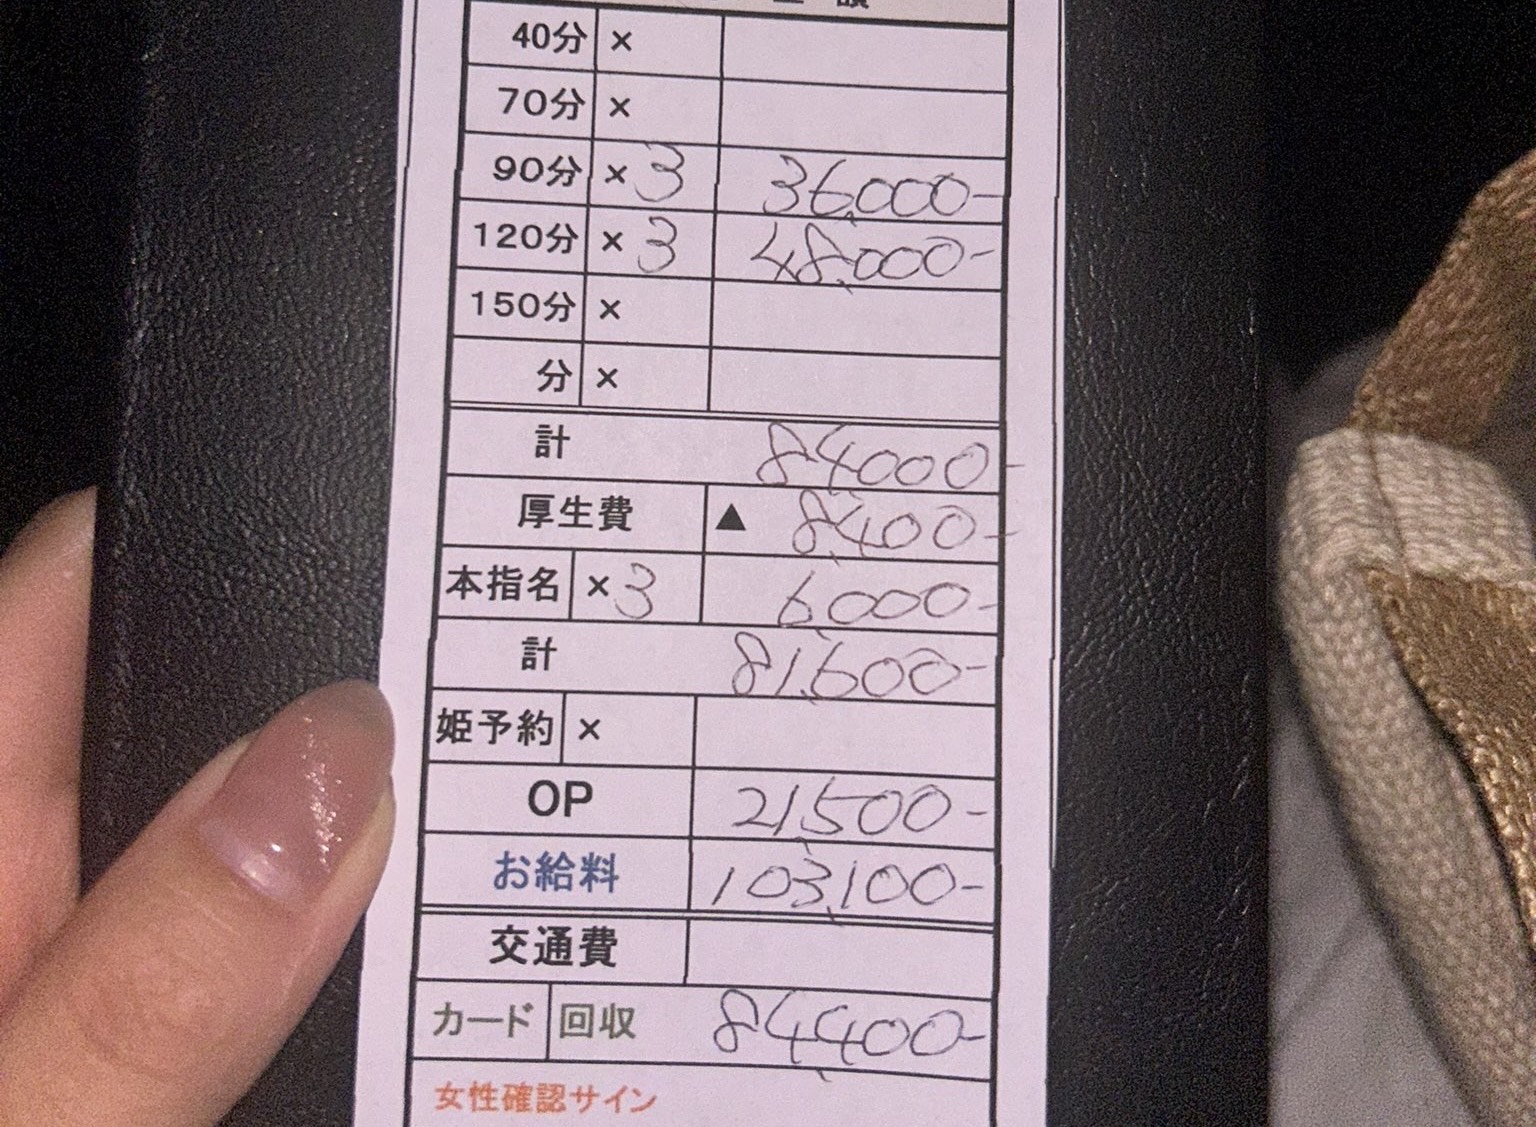 金額
40分 ×
70分 ×
90分 × 3 36,000-
120分 × 3 48,000-
150分 ×
分 ×
計 84000-
厚生費 ▲ 8,400-
本指名 × 3 6,000-
計 81,600-
姫予約 ×
OP 21,500-
お給料 103,100-
交通費
カード 回収 84,400-
女性確認サイン